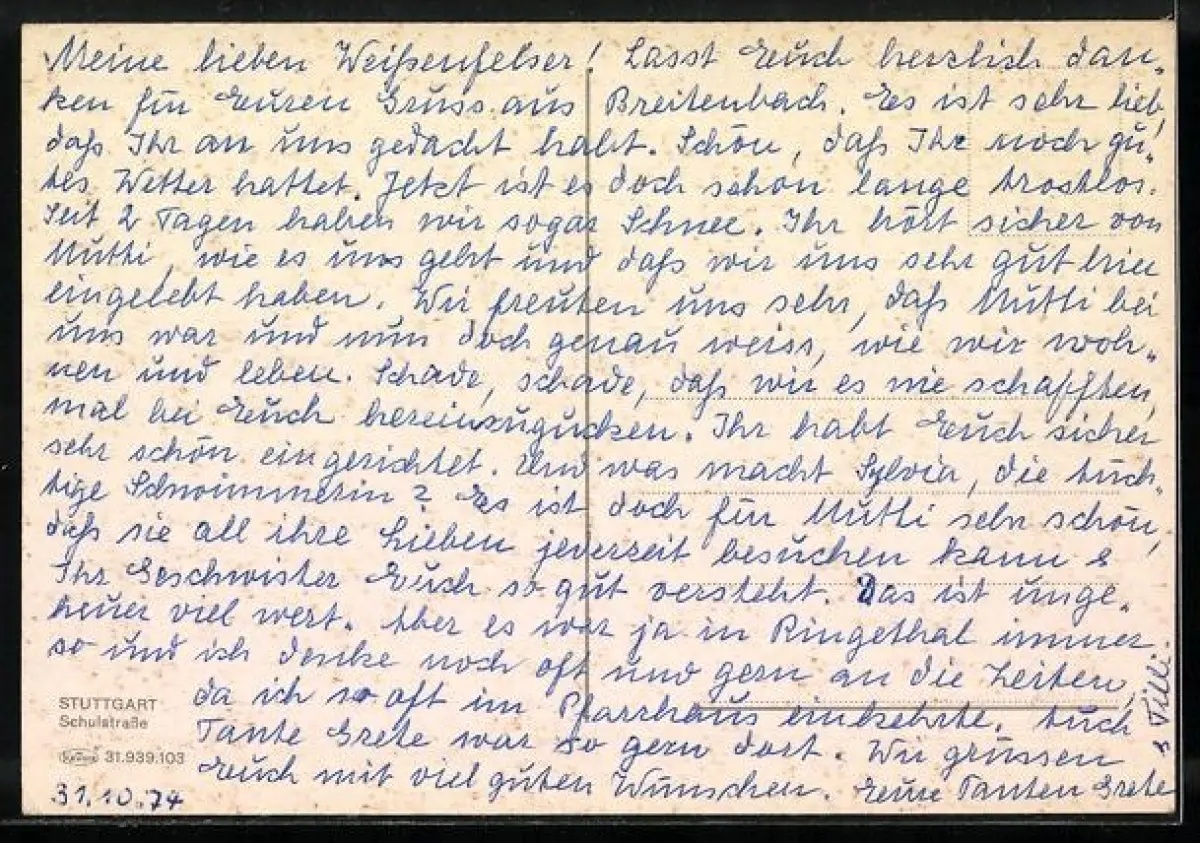 Meine lieben Weißenfelser! Lasst Euch herzlich dan-
ken für Euren Gruss aus Breitenbach. Es ist sehr lieb,
daß Ihr an uns gedacht habt. Schön, daß Ihr noch gu-
tes Wetter hattet. Jetzt ist es doch schon lange trostlos.
Seit 2 Tagen haben wir sogar Schnee. Ihr hört sicher von
Mutti, wie es uns geht und daß wir uns sehr gut hier
eingelebt haben. Wir freuten uns sehr, daß Mutti bei
uns war und nun doch genau weiss, wie wir woh-
nen und leben. Schade, schade, daß wir es nie schafften,
mal bei Euch hereinzugucken. Ihr habt Euch sicher
sehr schön eingerichtet. Und was macht Sylvia, die tüch-
tige Schwimmerin? Es ist doch für Mutti sehr schön,
daß sie all ihre Lieben jederzeit besuchen kann &
Ihr Geschwister Euch so gut versteht. Das ist unge-
heuer viel wert. Aber es war ja in Ringethal immer
so und ich denke noch oft und gern an die Zeiten,
da ich so oft im Pfarrhaus einkehrte. Auch
Tante Grete war so gern dort. Wir grüssen
Euch mit viel guten Wünschen. Eure Tanten Grete
& Tilli.
STUTTGART
Schulstraße
31.939.103
31.10.74